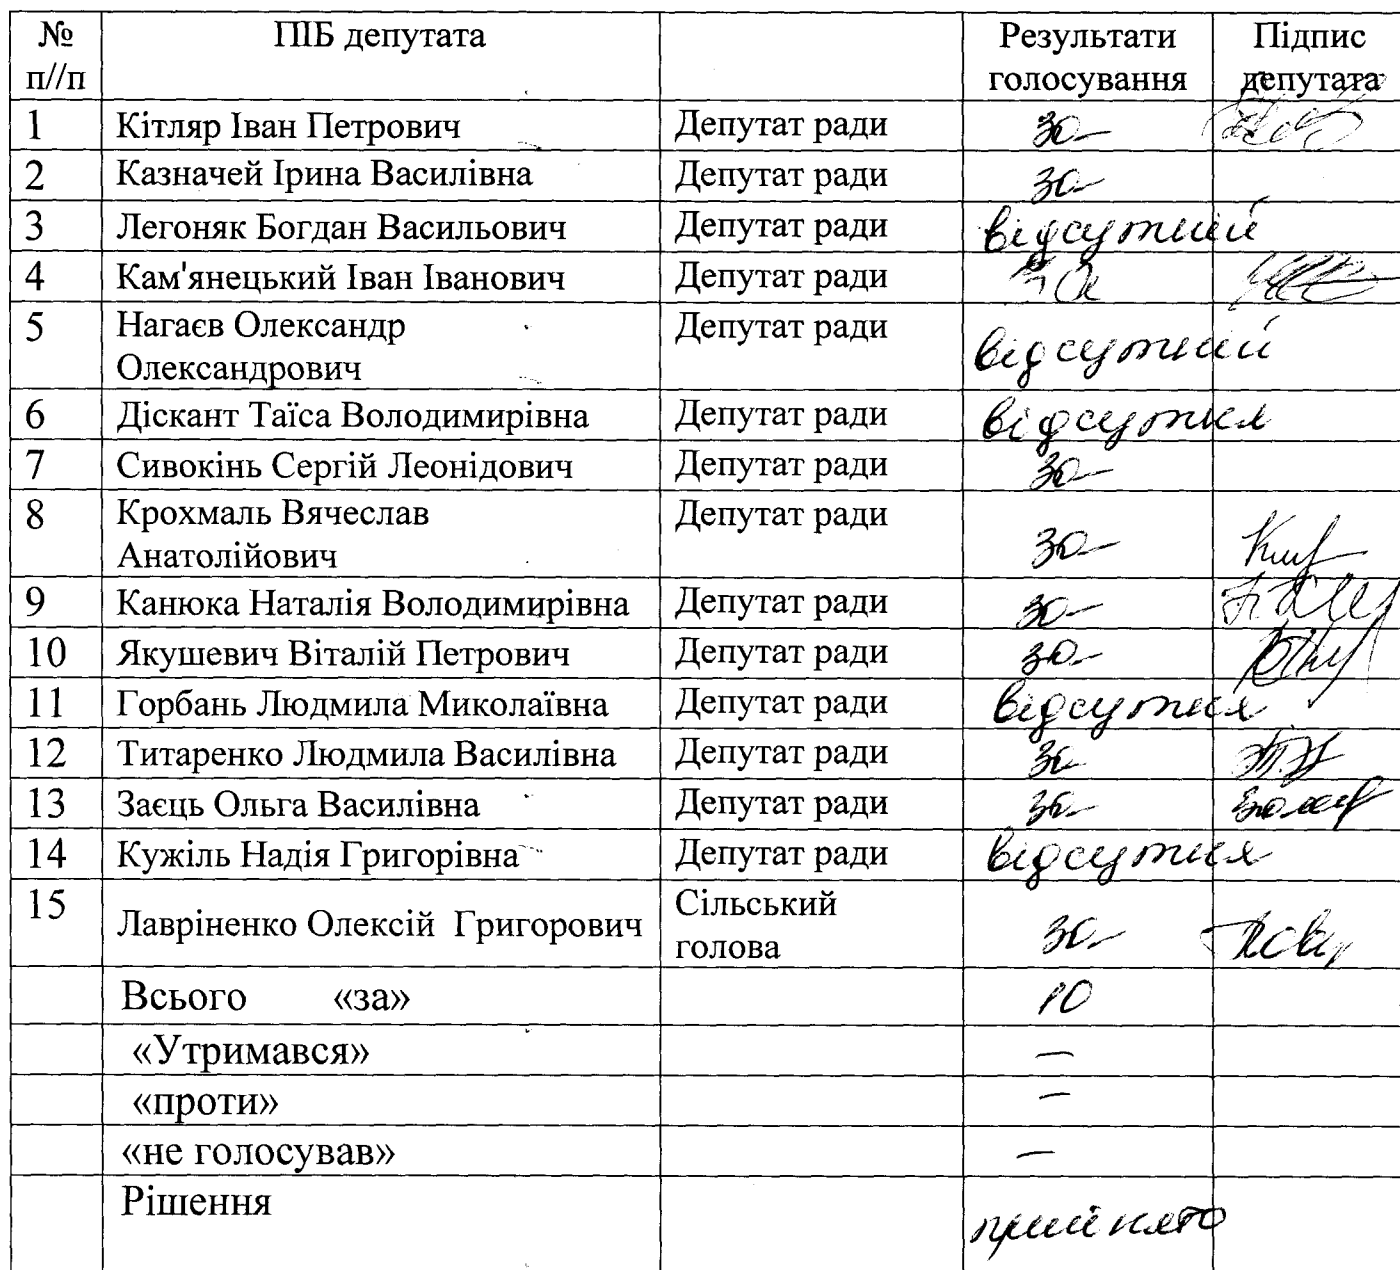 № ПІБ депутата Результати Підпис
п//п голосування депутата
1 Кітляр Іван Петрович Депутат ради за
2 Казначей Ірина Василівна Депутат ради за
3 Легоняк Богдан Васильович Депутат ради відсутній
4 Кам'янецький Іван Іванович Депутат ради за
5 Нагаєв Олександр Депутат ради відсутній
Олександрович
6 Діскант Таїса Володимирівна Депутат ради відсутня
7 Сивокінь Сергій Леонідович Депутат ради за
8 Крохмаль Вячеслав Депутат ради за
Анатолійович
9 Канюка Наталія Володимирівна Депутат ради за
10 Якушевич Віталій Петрович Депутат ради за
11 Горбань Людмила Миколаївна Депутат ради відсутня
12 Титаренко Людмила Василівна Депутат ради за
13 Заєць Ольга Василівна Депутат ради за
14 Кужіль Надія Григорівна Депутат ради відсутня
15 Лавріненко Олексій Григорович Сільський за
голова
Всього «за» 10
«Утримався» —
«проти» —
«не голосував» —
Рішення прийнято